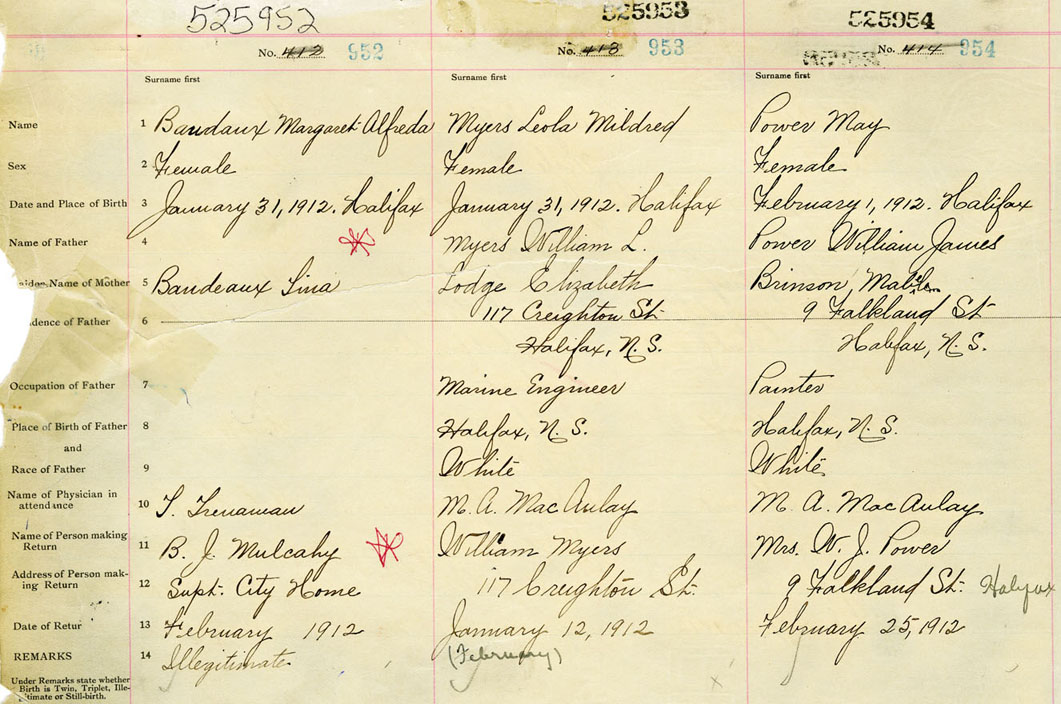 525952 525953 525954
No. 412 952 No. 413 953 No. 414 954
Surname first Surname first Surname first
Name 1 Baudaux Margaret Alfreda Myers Leola Mildred Power May
Sex 2 Female Female Female
Date and Place of Birth 3 January 31, 1912. Halifax January 31, 1912. Halifax February 1, 1912. Halifax
Name of Father 4 Myers William L. Power William James
Name of Mother 5 Baudeaux Lina Lodge Elizabeth Brinson,
117 Creighton St. 9 Falkland St
of Father 6
Halifax, N.S. Halifax, N.S.
Occupation of Father 7 Marine Engineer Painter
Place of Birth of Father 8 Halifax, N.S. Halifax, N.S.
and
Race of Father 9 White White
Name of Physician in
attendance 10 T. Trenaman M. A. MacAulay M. A. MacAulay
Name of Person making
Return 11 B. J. Mulcahy William Myers Mrs. W. J. Power
Address of Person mak-
ing Return 12 Supt. City Home 117 Creighton St. 9 Falkland St. Halifax
Date of Retur 13 February 1912 January 12, 1912 February 25, 1912
REMARKS 14 Illegitimate (February)
Under Remarks state whether
Birth is Twin, Triplet, Ille-
gitimate or Still-birth.